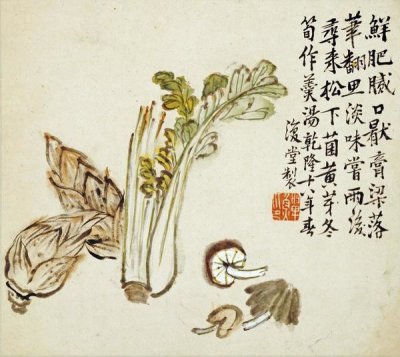 鮮肥膩口厭膏梁落
華翻思淡味嘗雨後
尋來松下菌黃芽冬
筍作羹湯乾隆十八年春
復堂製